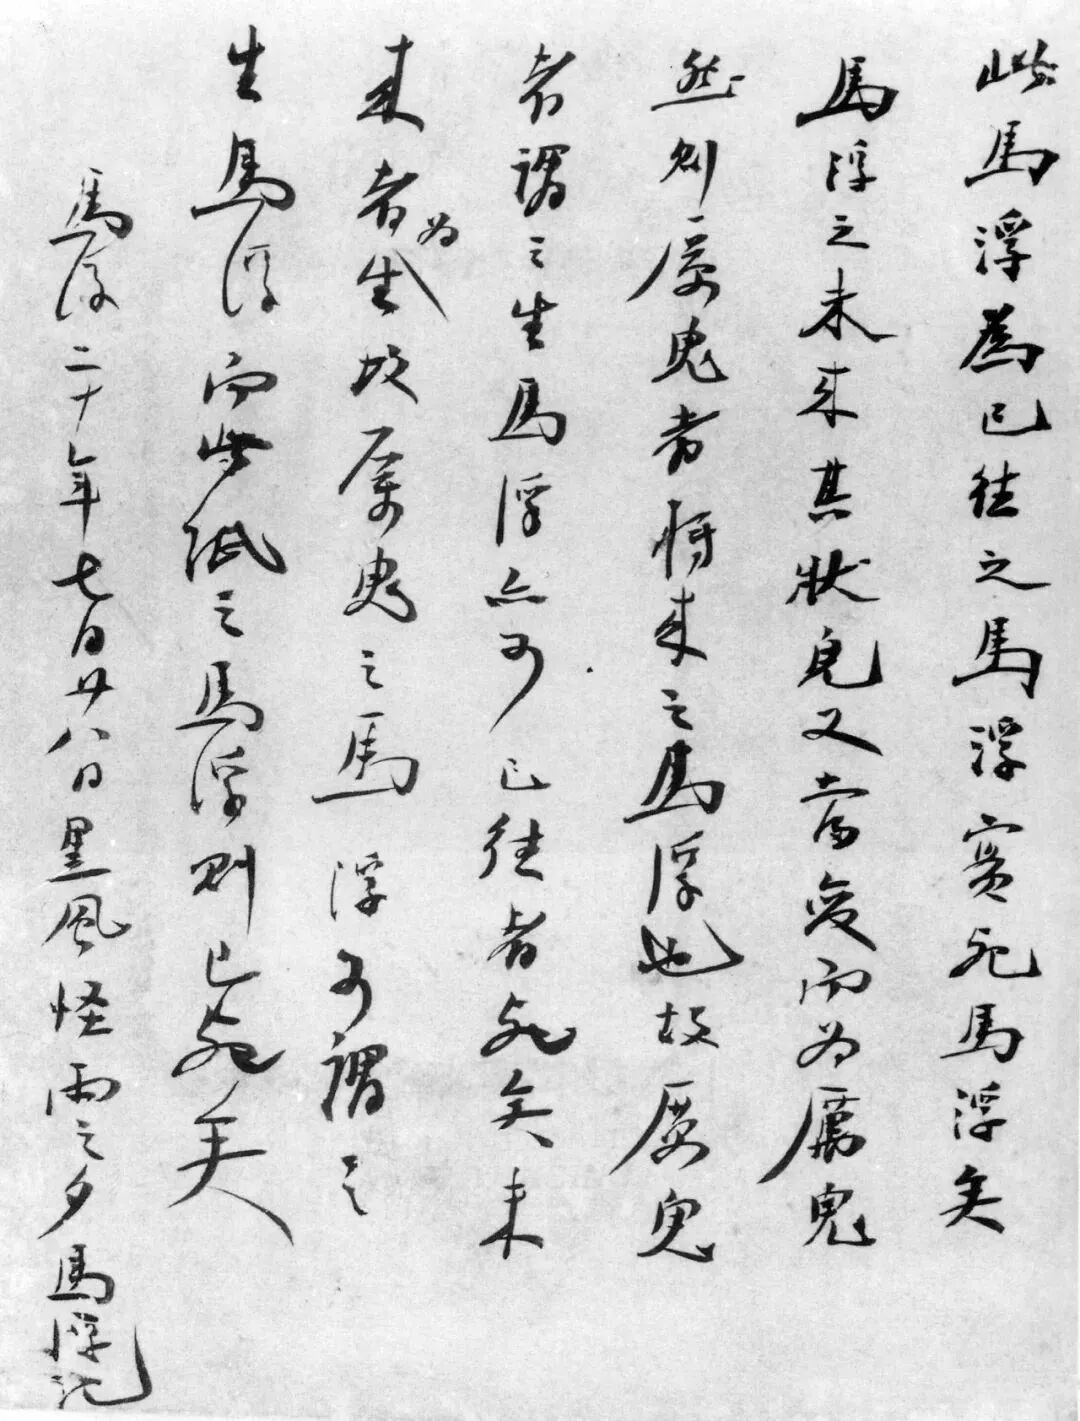 此馬浮為已往之馬浮實死馬浮矣
馬浮之未來其狀皃又當変而为厲鬼
然則厲鬼者將來之馬浮也故厲鬼
者謂之生馬浮亦可已往者死矣未
來者为生故厲鬼之馬浮可謂之
生馬浮而此紙之馬浮則已死矣
馬浮二十年七月廿八日黑風怪雨之夕馬浮記